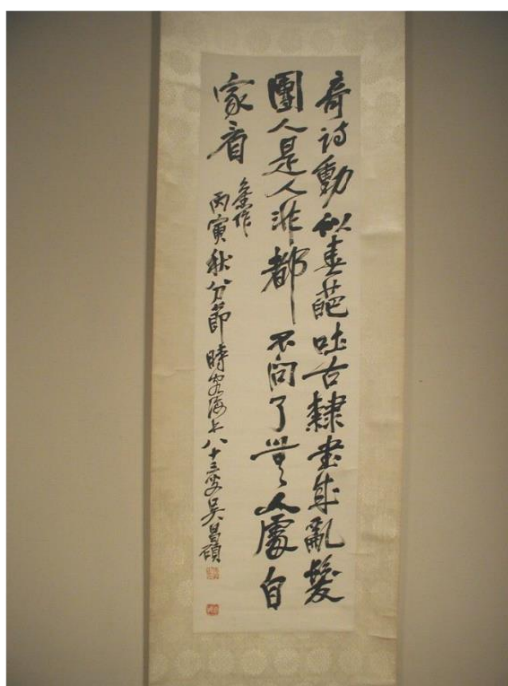 奇詩動似春葩吐古隸書成亂髮
團人是人非都不問了無人處自
家看
作
丙寅秋分節時客海上八十三叟吳昌碩